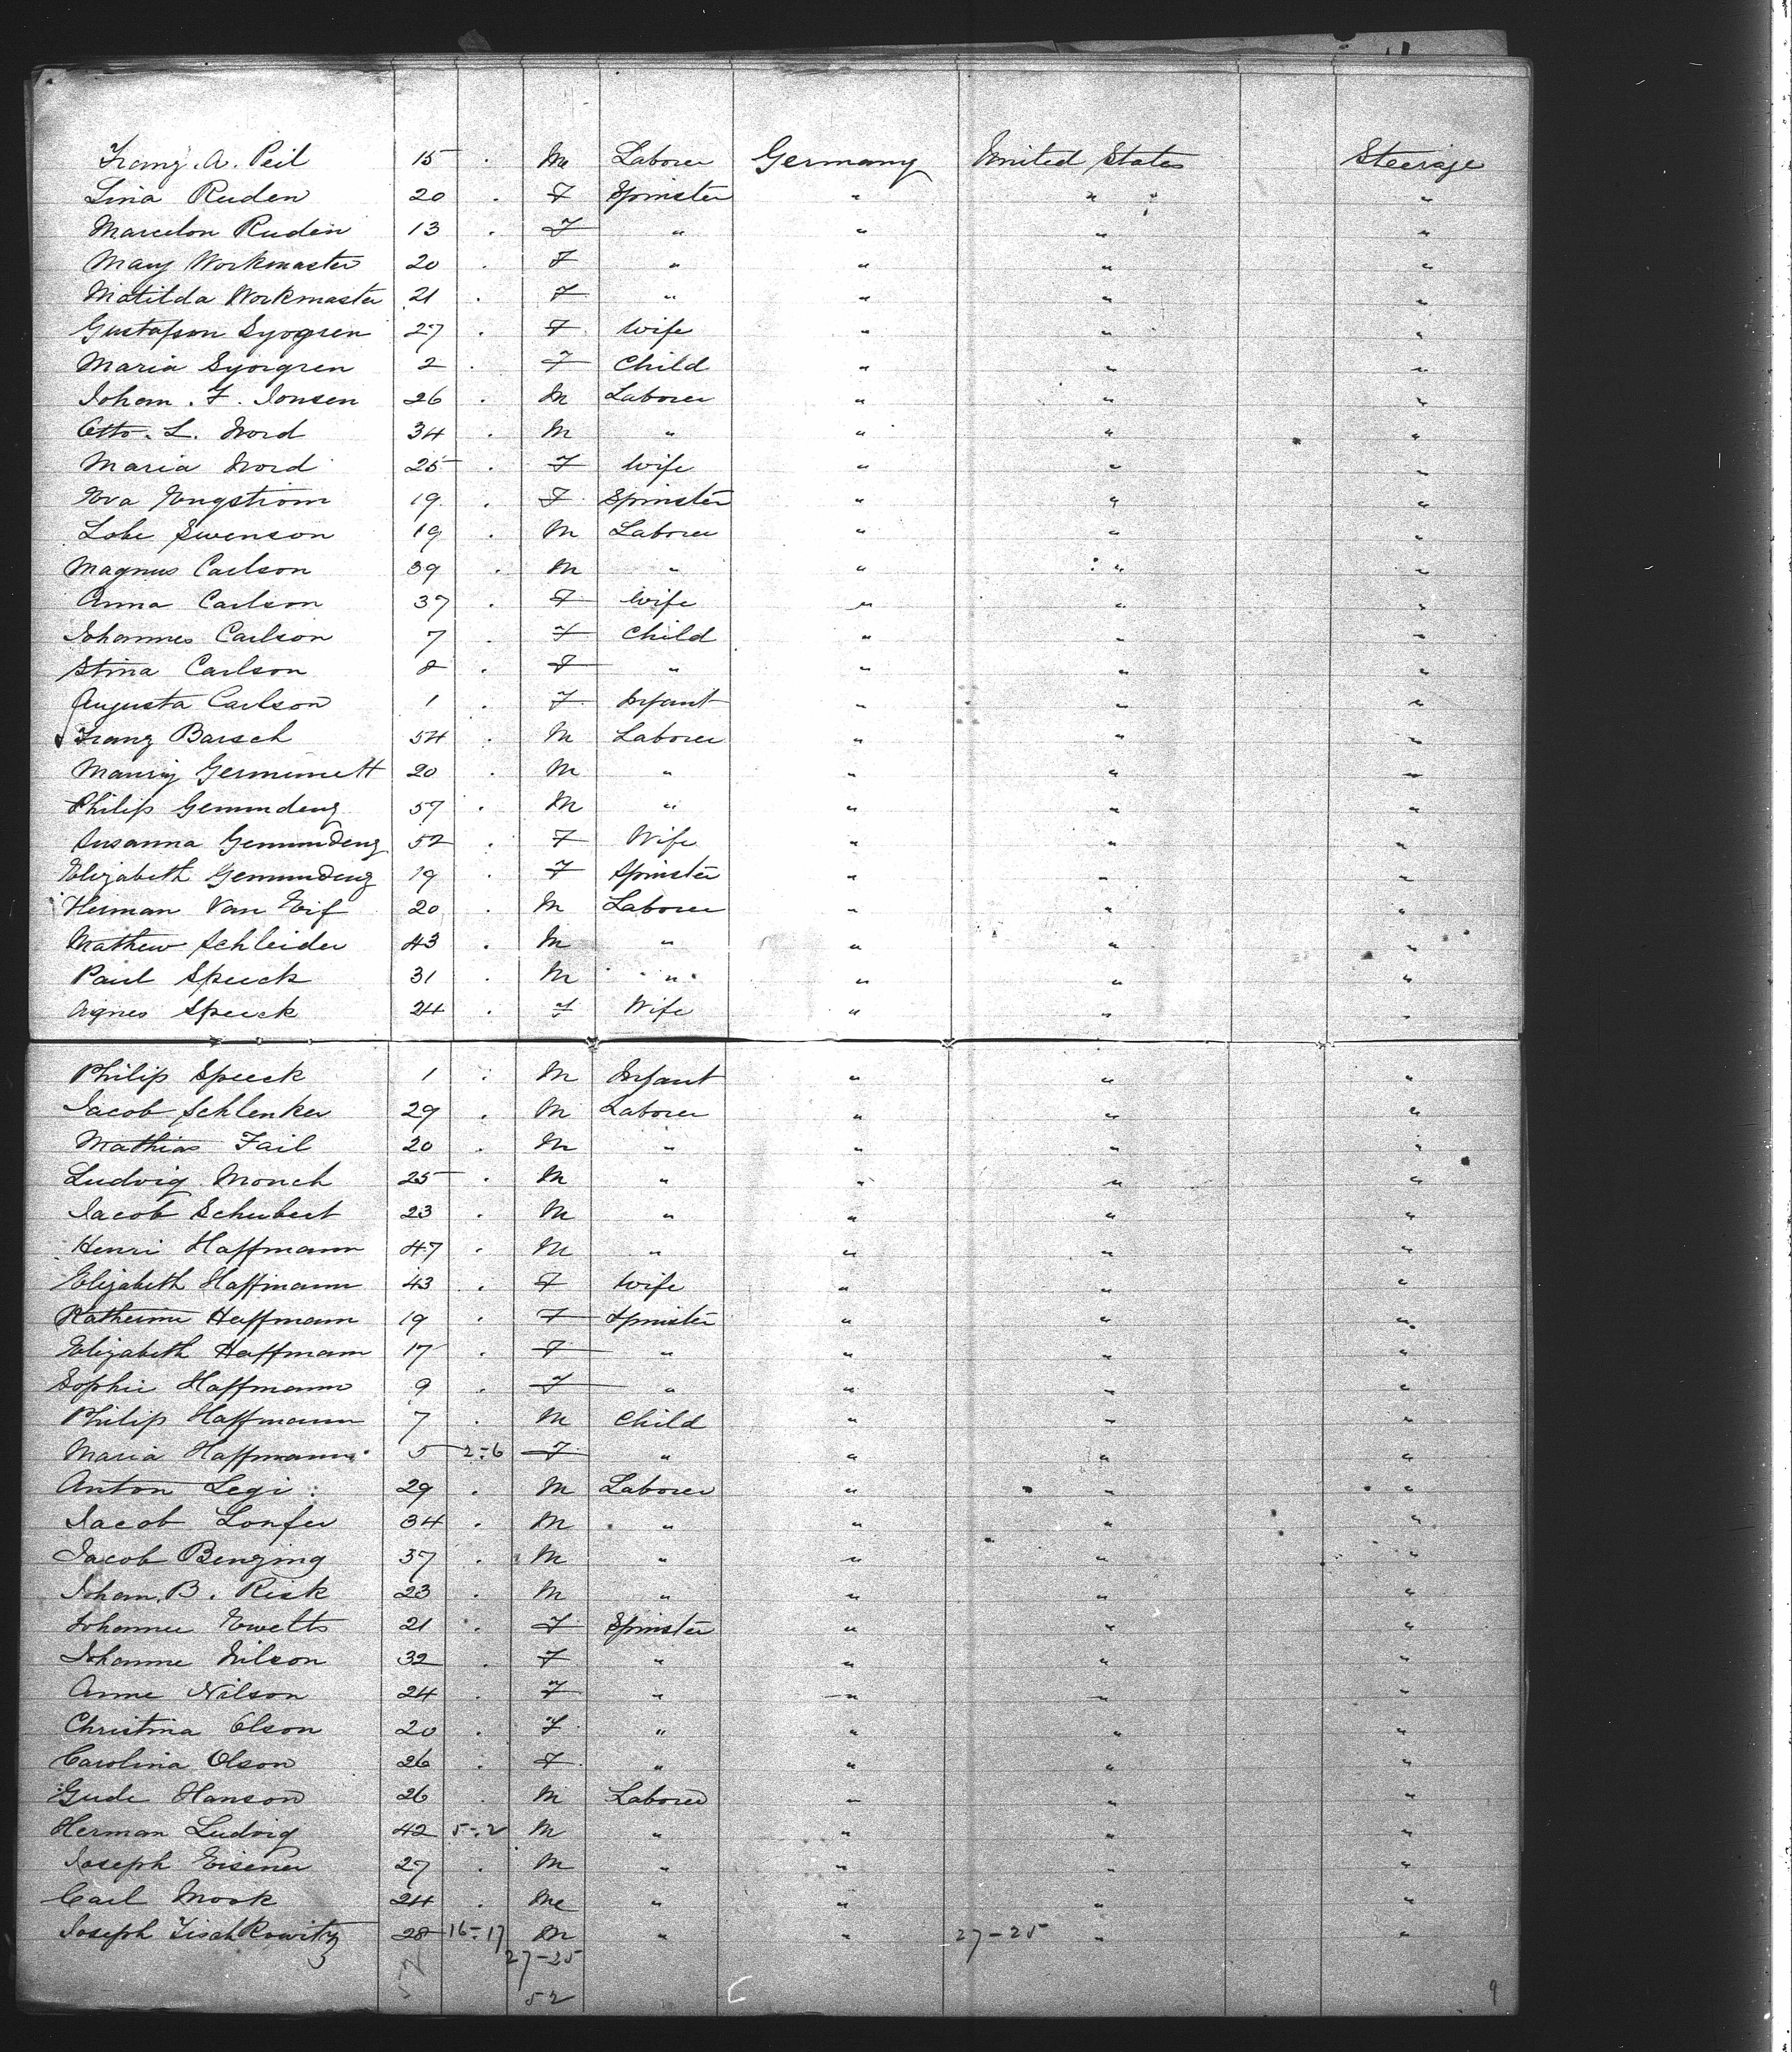 Franz. A. Peil 15 . M Laborer Germany United States Steerage
Lina Ruden 20 . F Spinster " " " "
Marcelon Ruden 13 . F " " " "
Mary Workmaster 20 . F " " " "
Matilda Workmaster 21 . F " " " "
Gustafson Syogren 27 . F wife " " "
Maria Syorgren 2 . F Child " " "
Joham. F. Jonsen 26 . M Laborer " " "
Otto. L. Nord 34 . M " " " "
Maria Nord 25 . F wife " " "
Eva Engstrom 19 . F Spinster " " "
Lobe Swenson 19 . M Laborer " " "
Magnus Carlson 39 . M " " " "
Anna Carlson 37 . F wife " " "
Johannes Carlson 7 . F Child " " "
Stina Carlson 8 . F " " " "
Augusta Carlson 1 . F Infant " " "
Franz Barsch 54 . M Laborer " " "
20 . M " " " "
Philip Gemmdenz 57 . M " " " "
Susanna Gemmdenz 52 . F Wife " " "
Elizabeth Gemmdenz 19 . F Spinster " " "
Herman Van Eif 20 . M Laborer " " "
Mathew Schleider 43 . M " " " "
Paul Speeck 31 . M " " " "
Agnes Speeck 24 . F Wife " " "
Philip Speeck 1 . M Infant " " "
Jacob Schlenker 29 . M Laborer " " "
Mathias Fail 20 . M " " " "
Ludvig Monch 25 . M " " " "
Jacob Schubert 23 . M " " " "
Henri Haffmann 47 . M " " " "
Elizabeth Haffmann 43 . F wife " " "
Katherine Haffmann 19 . F Spinster " " "
Elizabeth Haffmann 17 . F " " " "
Sophie Haffmann 9 . F " " " "
Philip Haffmann 7 . M Child " " "
Maria Haffmann 5 2-6 F " " " "
Anton Legi 29 . M Laborer " " "
Jacob Lonfer 34 . M " " " "
Jacob Benzing 37 . M " " " "
Joham. B. Risk 23 . M " " " "
Johanne Ewelts 21 . F Spinster " " "
Johanne Nilson 32 . F " " " "
Anne Nilson 24 . F " " " "
Christina Olson 20 . F " " " "
Carolina Olson 26 . F " " " "
Gude Hanson 26 . M Laborer " " "
Herman Ludvig 42 5-2 M " " " "
Joseph Eisener 27 . M " " " "
Carl Mork 24 . M " " " "
Joseph TischKowitz 28 16-17 M " " 27-25 " "
52 27-25
52 9